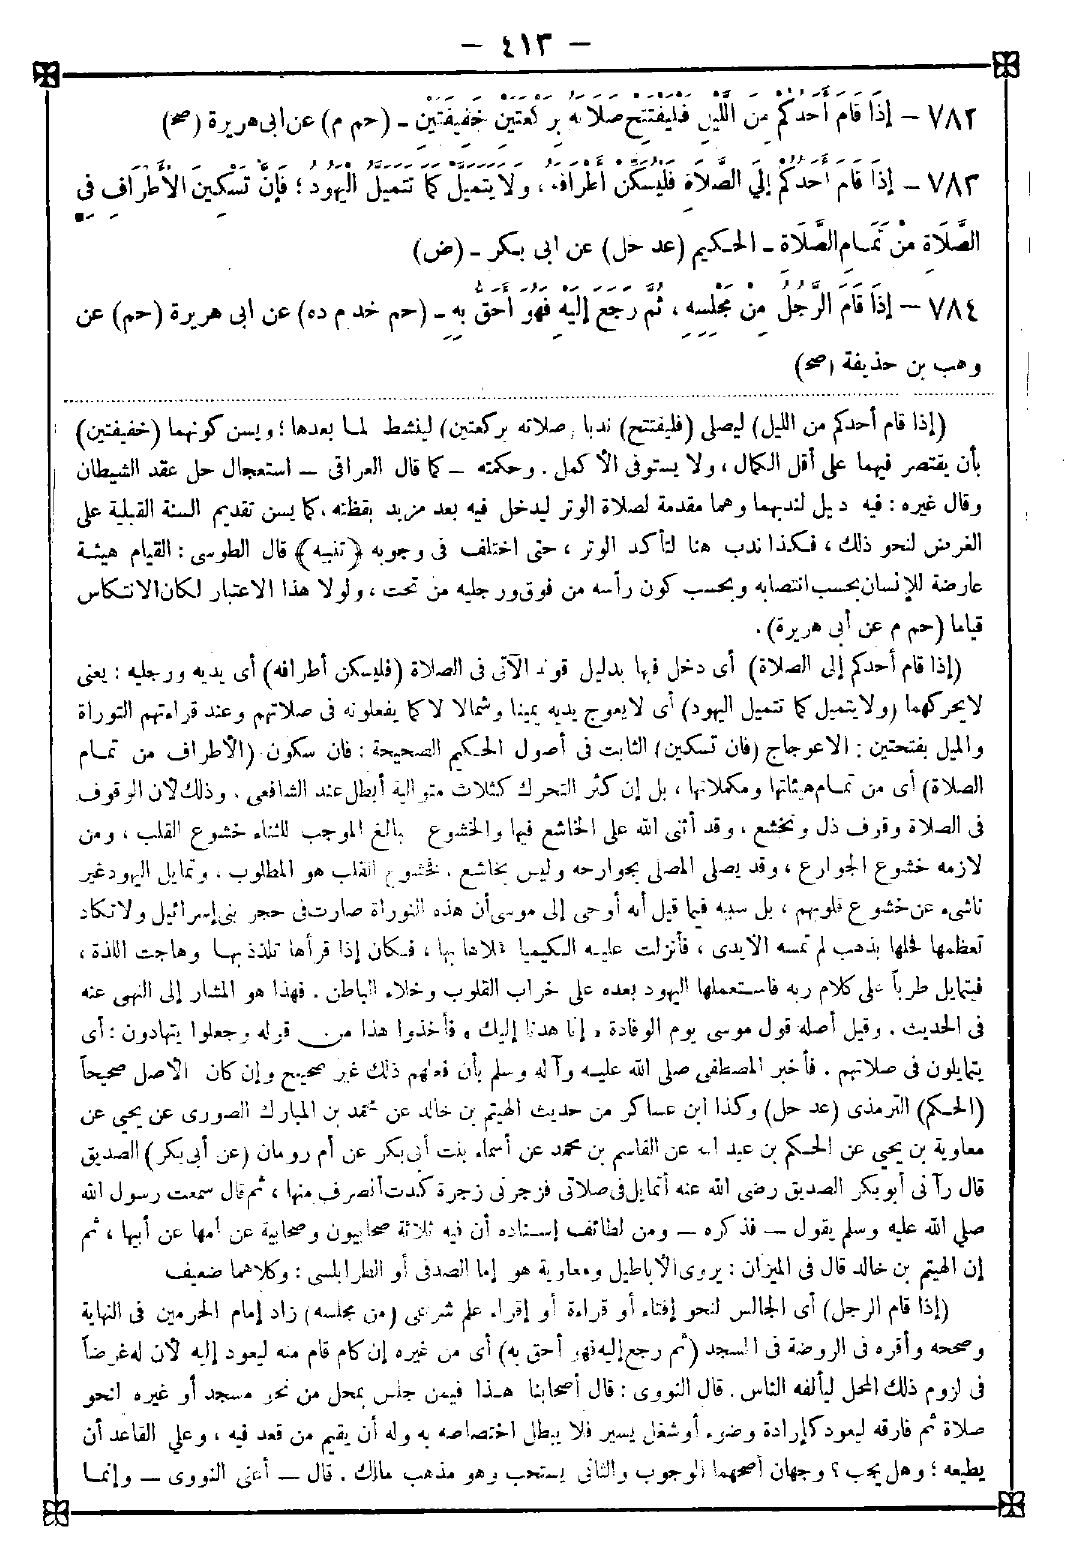 — ٤١٣ —
٧٨٢ — إِذَا قَامَ أَحَدُكُمْ مِنَ اللَّيْلِ فَلْيَفْتَتِحْ صَلَاتَهُ بِرَكْعَتَيْنِ خَفِيفَتَيْنِ ـ (حم م) عن ابى هريرة (صح)
٧٨٣ — إِذَا قَامَ أَحَدُكُمْ إِلَى الصَّلَاةِ فَلْيُسَكِّنْ أَطْرَافَهُ ، وَلَا يَتَمَيَّلْ كَمَا تَتَمَيَّلُ الْيَهُودُ ؛ فَإِنَّ تَسْكِينَ الْأَطْرَافِ فِى
الصَّلَاةِ مِنْ تَمَامِ الصَّلَاةِ ـ الحكيم (عد حل) عن ابى بكر ـ (ض)
٧٨٤ — إِذَا قَامَ الرَّجُلُ مِنْ مَجْلِسِهِ ، ثُمَّ رَجَعَ إِلَيْهِ فَهُوَ أَحَقُّ بِهِ ـ (حم خد م ده) عن ابى هريرة (حم) عن
وهب بن حذيفة (صح)
(إذا قام أحدكم من الليل) ليصلى (فليفتتح) ندبا (صلاته بركعتين) لينشط لما بعدها ؛ ويسن كونهما (خفيفتين)
بأن يقتصر فيهما على أقل الكمال ، ولا يستوفى الأكمل . وحكمته ـ كما قال العراقى ـ استعجال حل عقد الشيطان
وقال غيره : فيه دليل لندبهما وهما مقدمة لصلاة الوتر ليدخل فيه بعد مزيد يقظته ، كما يسن تقديم السنة القبلية على
الفرض لنحو ذلك ، فكذا ندب هنا لتأكد الوتر ، حتى اختلف فى وجوبه (تنبيه) قال الطوسى : القيام هيئة
عارضة للإنسان بحسب انتصابه وبحسب كون رأسه من فوق ورجليه من تحت ، ولولا هذا الاعتبار لكان الانتكاس
قياما (حم م عن أبى هريرة) .
(إذا قام أحدكم إلى الصلاة) أى دخل فيها بدليل قوله الآتى فى الصلاة (فليسكن أطرافه) أى يديه ورجليه : يعنى
لايحركهما (ولايتميل كما تتميل اليهود) أى لايعوج يديه يمينا وشمالا لا كما يفعلونه فى صلاتهم وعند قراءتهم التوراة
والميل بفتحتين : الاعوجاج (فان تسكين) الثابت فى أصول الحكيم الصحيحة : فان سكون (الأطراف من تمام
الصلاة) أى من تمام هيئاتها ومكملاتها ، بل إن كثر التحرك كثلاث متوالية أبطل عند الشافعى . وذلك لأن الوقوف
فى الصلاة وقوف ذل وتخشع ، وقد أثنى الله على الخاشع فيها والخشوع بالغ الموجب للثناء خشوع القلب ، ومن
لازمه خشوع الجوارع ، وقد يصلى المصلى بجوارحه وليس بخاشع . فخشوع القلب هو المطلوب . وتمايل اليهود غير
ناشىء عن خشوع قلوبهم ، بل سببه فيما قيل أنه أوحى إلى موسى أن هذه التوراة صارت فى حجر بنى إسرائيل ولا تكاد
تعظمها فحلها بذهب لم تمسه الأيدى ، فأنزلت عليه الكيميا فحلاها بها ، فكان إذا قرأها تلذذ بها وهاجت اللذة ،
فيتمايل طرباً على كلام ربه فاستعملها اليهود بعده على خراب القلوب وخلاء الباطن . فهذا هو المشار إلى النهى عنه
فى الحديث . وقيل أصله قول موسى يوم الوفادة « إنا هدنا إليك » فأخذوا هذا من قوله وجعلوا يتهادون : أى
يتمايلون فى صلاتهم . فأخبر المصطفى صلى الله عليه وآله وسلم بأن فعلهم ذلك غير صحيح وإن كان الأصل صحيحاً
(الحكيم) الترمذى (عد حل) وكذا ابن عساكر من حديث الهيثم بن خالد عن محمد بن المبارك الصورى عن يحيى عن
معاوية بن يحيى عن الحكم بن عبد الله عن القاسم بن محمد عن أسماء بنت أبى بكر عن أم رومان (عن أبى بكر) الصديق
قال رآنى أبو بكر الصديق رضى الله عنه أتمايل فى صلاتى فزجرنى زجرة كدت أنصرف منها ، ثم قال سمعت رسول الله
صلى الله عليه وسلم يقول ـ فذكره ـ ومن لطائف إسناده أن فيه ثلاثة صحابيون وصحابية عن أمها عن أبيها ، ثم
إن الهيثم بن خالد قال فى الميزان : يروى الأباطيل ومعاوية هو إما الصدفى أو الطرابلسى : وكلاهما ضعيف
(إذا قام الرجل) أى الجالس لنحو إفتاء أو قراءة أو إقراء علم شرعى (من مجلسه) زاد إمام الحرمين فى النهاية
وصححه وأقره فى الروضة فى المسجد (ثم رجع إليه فهو أحق به) أى من غيره إن كام قام منه ليعود إليه لأن له غرضاً
فى لزوم ذلك المحل ليألفه الناس . قال النووى : قال أصحابنا هذا فيمن جلس بمحل من نحو مسجد أو غيره لنحو
صلاة ثم فارقه ليعود كإرادة وضوء أو شغل يسير فلا يبطل اختصاصه به وله أن يقيم من قعد فيه ، وعلى القاعد أن
يطيعه ؛ وهل يجب ؟ وجهان أصحهما الوجوب والثانى يستحب وهو مذهب مالك . قال ـ أعنى النووى ـ وإنما